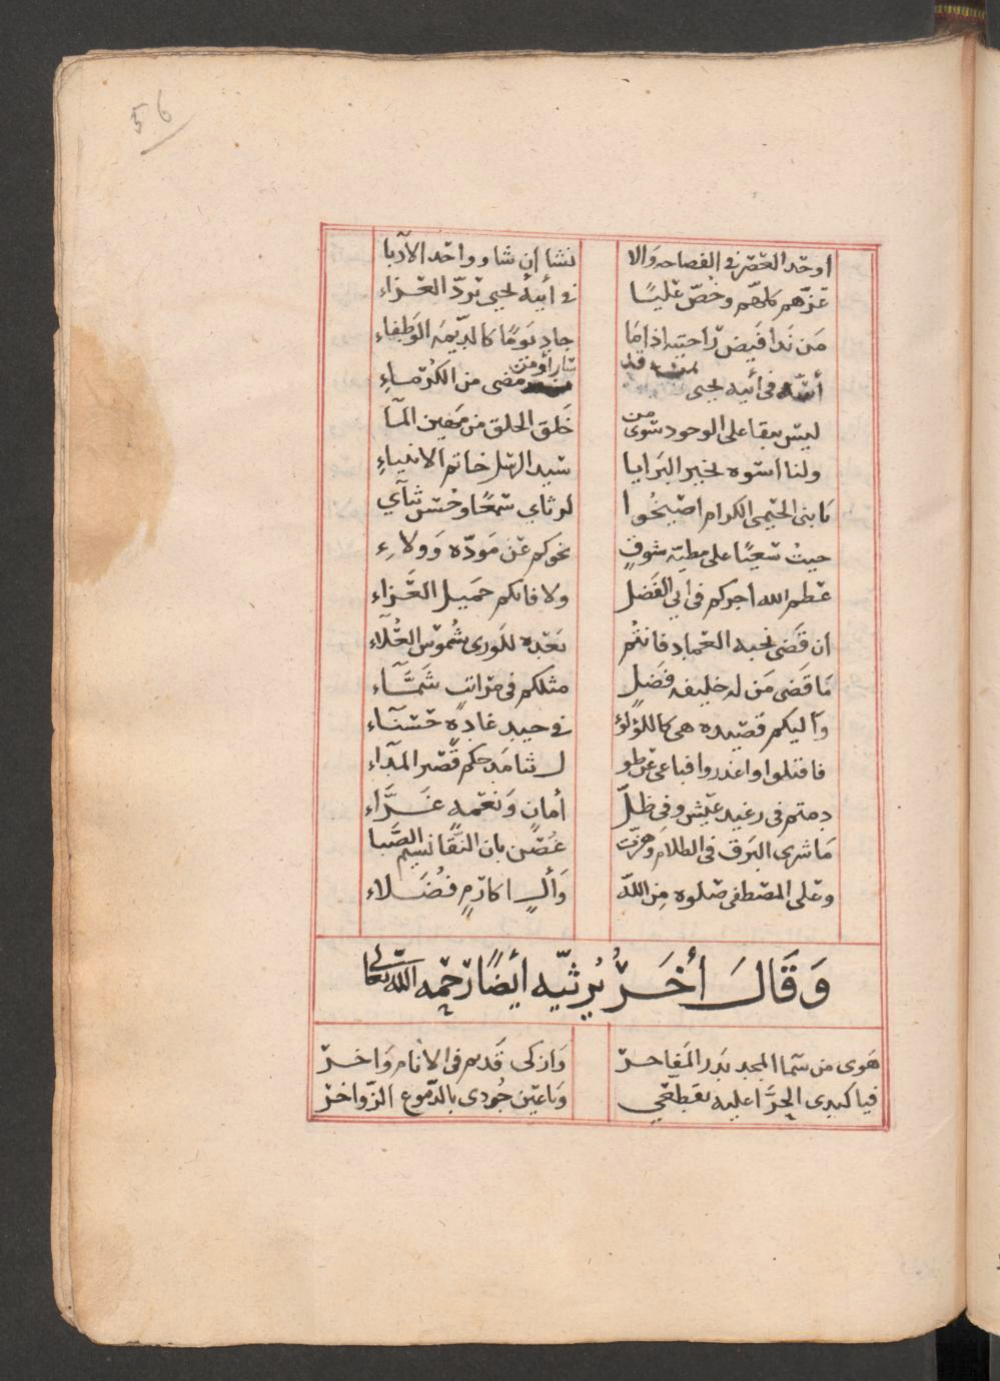 56
أوحد العصر في الفصاحه والا نشا إن شا وواحد الأدبا
عزّهم كلهم وخصّ عليًا في أبيه لحيى تردّ العزاء
من ندا فيض راحتيه إذا ما جاد يومًا كالديمه الوطفاء
أسّه في أبيه لحيى بمن قد سار أو من مضى من الكرماء
ليس يبقا على الوجود سوى من خلق الخلق من مهين المآ
ولنا أسوه بخير البرايا سيد الرسل خاتم الانبياء
يا بني الكرام اصيخوا لرثاي سمعًا وحسن ثنآي
حيث سعيًا على مطيّة شوقٍ نحوكم عن مودّه وولاءِ
عظم الله أجركم في أبي الفضل ولا فاتكم جميل العزاء
ان قضى نحبه العماد فانتم بعده للورى شموس العُلآء
ما قضى من له خليفه فضلٍ مثلكم في مراتب شمّآء
وآليكم قصيده هي كاللؤلؤ في جيد غادةٍ حسنآء
فاقبلوا واعذروا فباعي عن طو ل ثنا مدحكم قصر المدآء
دمتم في رغيد عيش وفي ظلّ أمانٍ ونعمهٍ غرّاء
ما شرى البرق في الظلام وهزّت غصن بان النقا نسيم الصّبا
وعلى المصطفى صلوه من اللّه وألٍ اكارمٍ فضلاء
وَقَالَ أخَر يُرثيّه أيضًا رحمه الله تعالى
هوى من سما المجد بدر المفاخر وازكى قديم في الانام واخر
فيا كبدي الحرّا عليه تقطّعي ويا عين جُودي بالدّموع الزّواخر